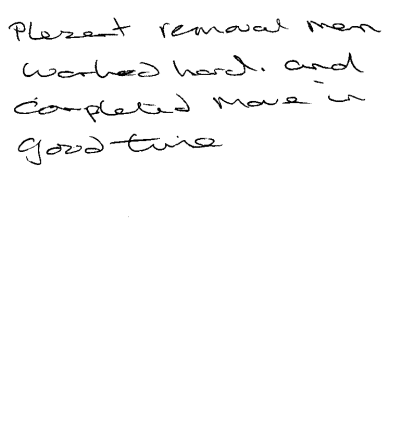 Plesent removal men
worked hard. and
completed move in
good time